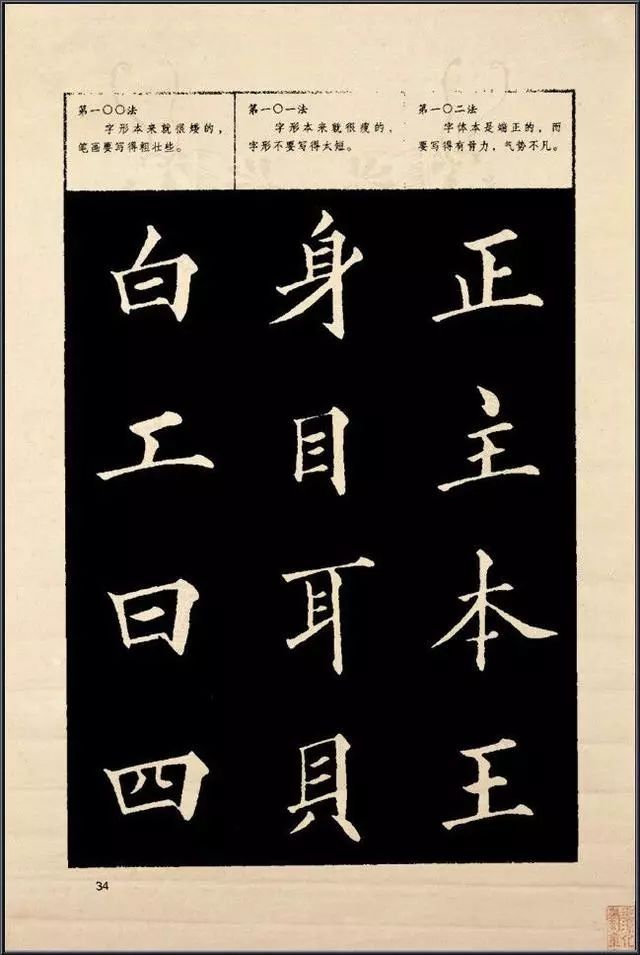 第一〇〇法
字形本来就很矮的，
笔画要写得粗壮些。
第一〇一法
字形本来就很瘦的，
字形不要写得太短。
第一〇二法
字体本是端正的，而
要写得有骨力，气势不凡。
白工曰四
身目耳貝
正主本王
34